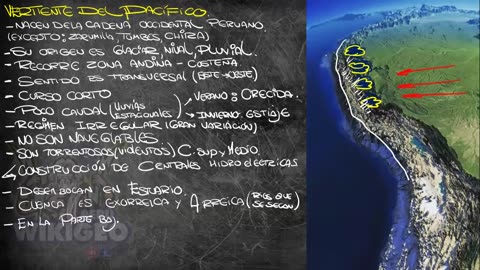 VERTIENTE DEL PACÍFICO.
- NACEN DE LA CADENA OCCIDENTAL PERUANO.
(EXCEPTO: ZARUMILLA TUMBES, CHIRA)
- SU ORIGEN ES GLACIAR, NIVAL, PLUVIAL.
- RECORRE ZONA ANDINA - COSTEÑA.
- SENTIDO ES TRANSVERSAL (ESTE → OESTE)
- CURSO CORTO
- POCO CAUDAL (LLUVIAS ESTACIONALES)
VERANO: CRECIDA.
INVIERNO: ESTIAJE
- REGIMEN IRREGULAR (GRAN VARIACIÓN)
- NO SON NAVEGABLES
- SON TORRENTOSOS (VIOLENTOS) C. SUP y MEDIO
CONSTRUCCIÓN DE CENTRALES HIDROELECTRICAS
- DESEMBOCAN EN ESTUARIO.
- CUENCA ES EXORREICA Y ARREICA (RIOS QUE SE SECAN)
- EN LA PARTE BAJ.
WIKIGEO